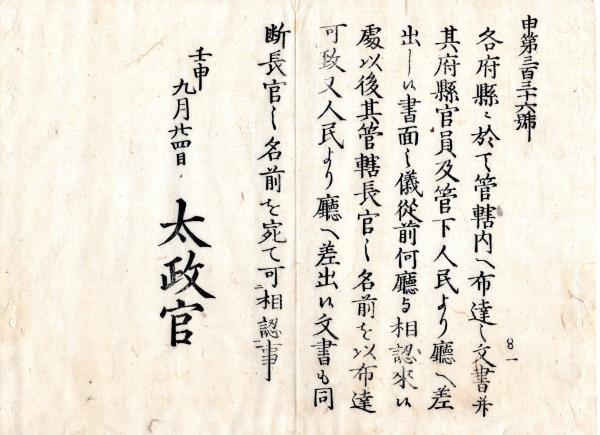 申第三百三十六號
各府縣ニ於テ管轄内ヘ布達ノ文書并
其府縣官員及管下人民より廳ヘ差
出シ候書面之儀從前何廳与相認來候
處以後其管轄長官之名前を以布達
可致又人民より廳ヘ差出候文書も同
断長官之名前を宛て可相認事
壬申
九月廿四日
太政官